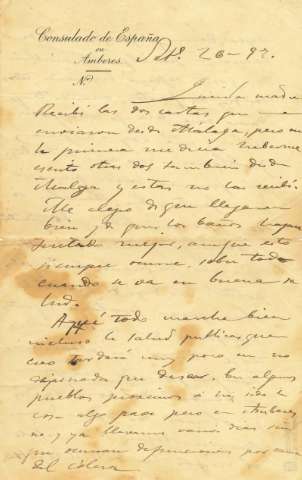 Consulado de España
en
Amberes.
Nº
Setbre. 26-92.
Querida madre
Recibi las dos cartas que me
enviaron desde Malaga, pero en
la primera me decia haberme
escrito otras dos tambien desde
Malaga y estas no las recibi.
Me alegro de que llegaran
bien y de que los baños hayan
sentado mejor, aunque esto
siempre ocurre, sobre todo
cuando se va en buena sa
lud.
Aqui todo marcha bien
incluso la salud publica, que
creo tardará muy poco en no
dejar nada que desear. En algunos
pueblos proximos á
algo pero en Amberes
no, y ya llevamos varios dias sin
que ocurran defunciones por causa
del cólera